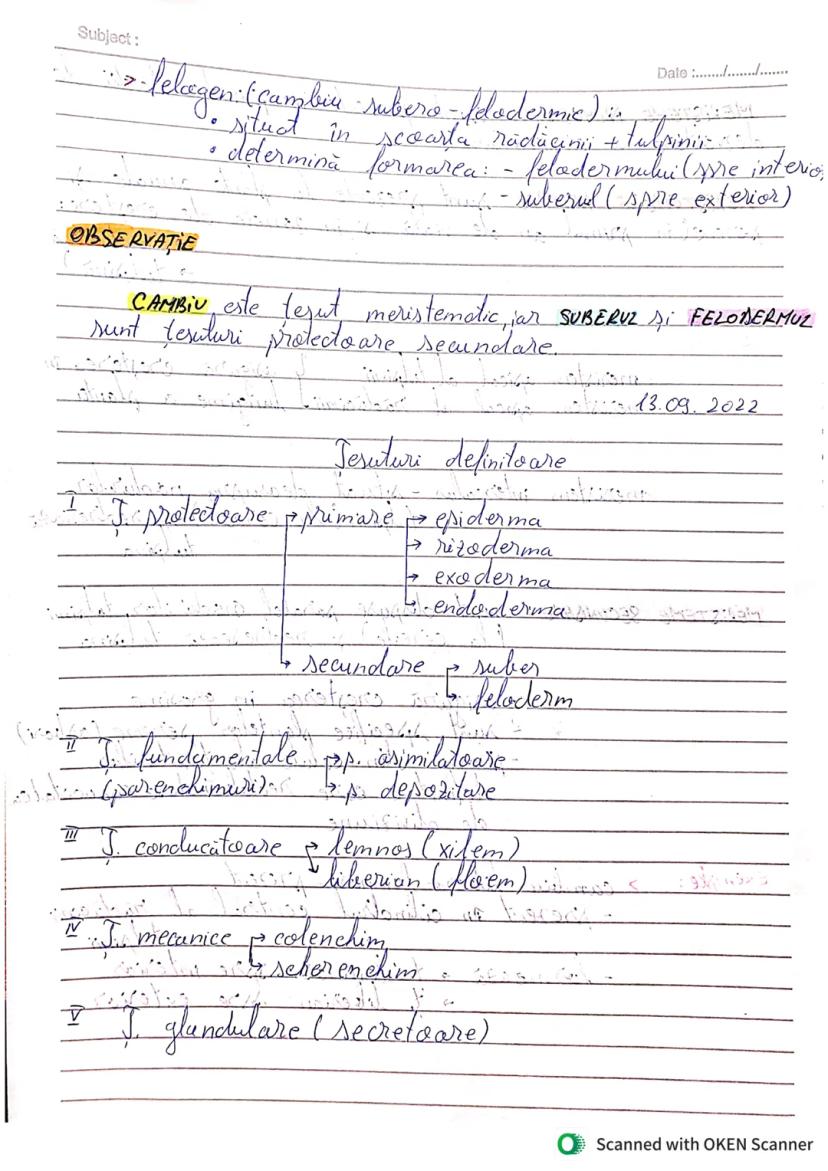 Subject :
Date :......./......./.......
> felogen: (cambiu subero-felodermic) :
• situat în scoarța rădăcinii + tulpinii
• determină formarea: - felodermului (spre interior
- suberul (spre exterior)
OBSERVAȚIE
CAMBIU este țesut meristematic, iar SUBERUL și FELODERMUL
sunt țesuturi protectoare secundare.
13.09.2022
Țesuturi definitoare
I Ț. protectoare → primare → epiderma
→ rizoderma
→ exoderma
→ endoderma
→ secundare → suber
→ feloderm
II Ț. fundamentale → p. asimilatoare
(parenchimuri) → p. depozitare
III Ț. conducătoare → lemnos (xilem)
liberian (floem)
IV Ț. mecanice → colenchim
→ scherenchim
V Ț. glandulare (secretoare)
Scanned with OKEN Scanner